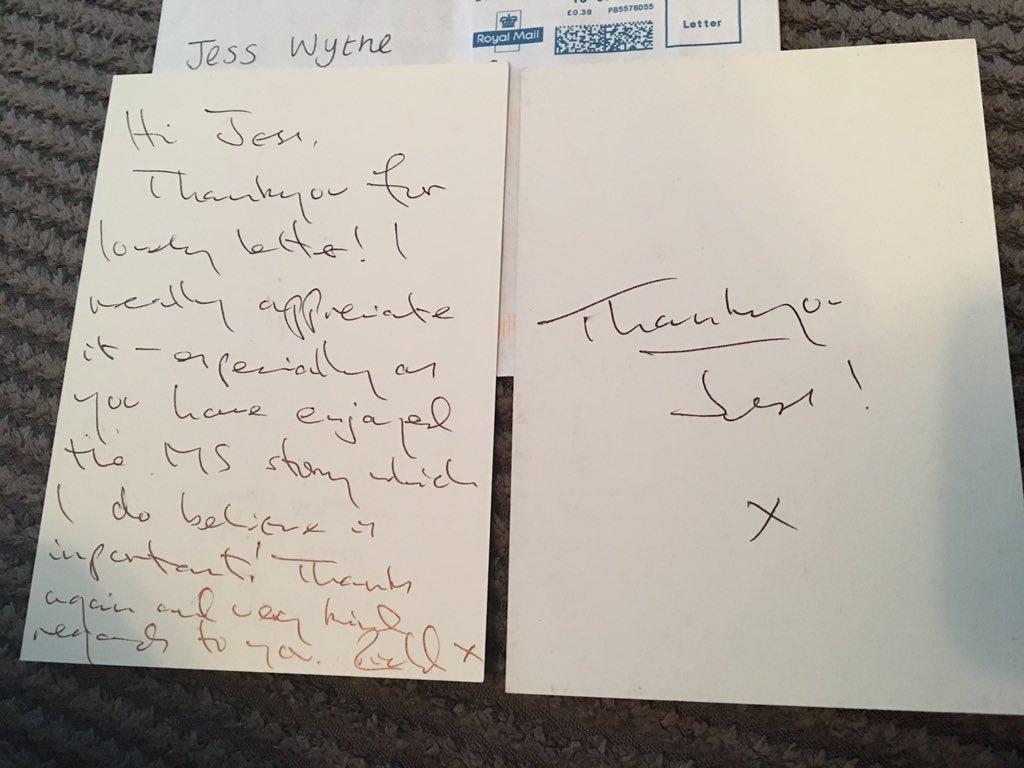 £0.38 PB5576055
Royal Mail
Letter
Jess Wythe
Hi Jess,
Thankyou for
lovely letter! I
really appreciate
it - especially as
you have enjoyed
the MS story which
I do believe is
important! Thanks
again and very kind
regards to you. x
Thankyou
Jess!
x